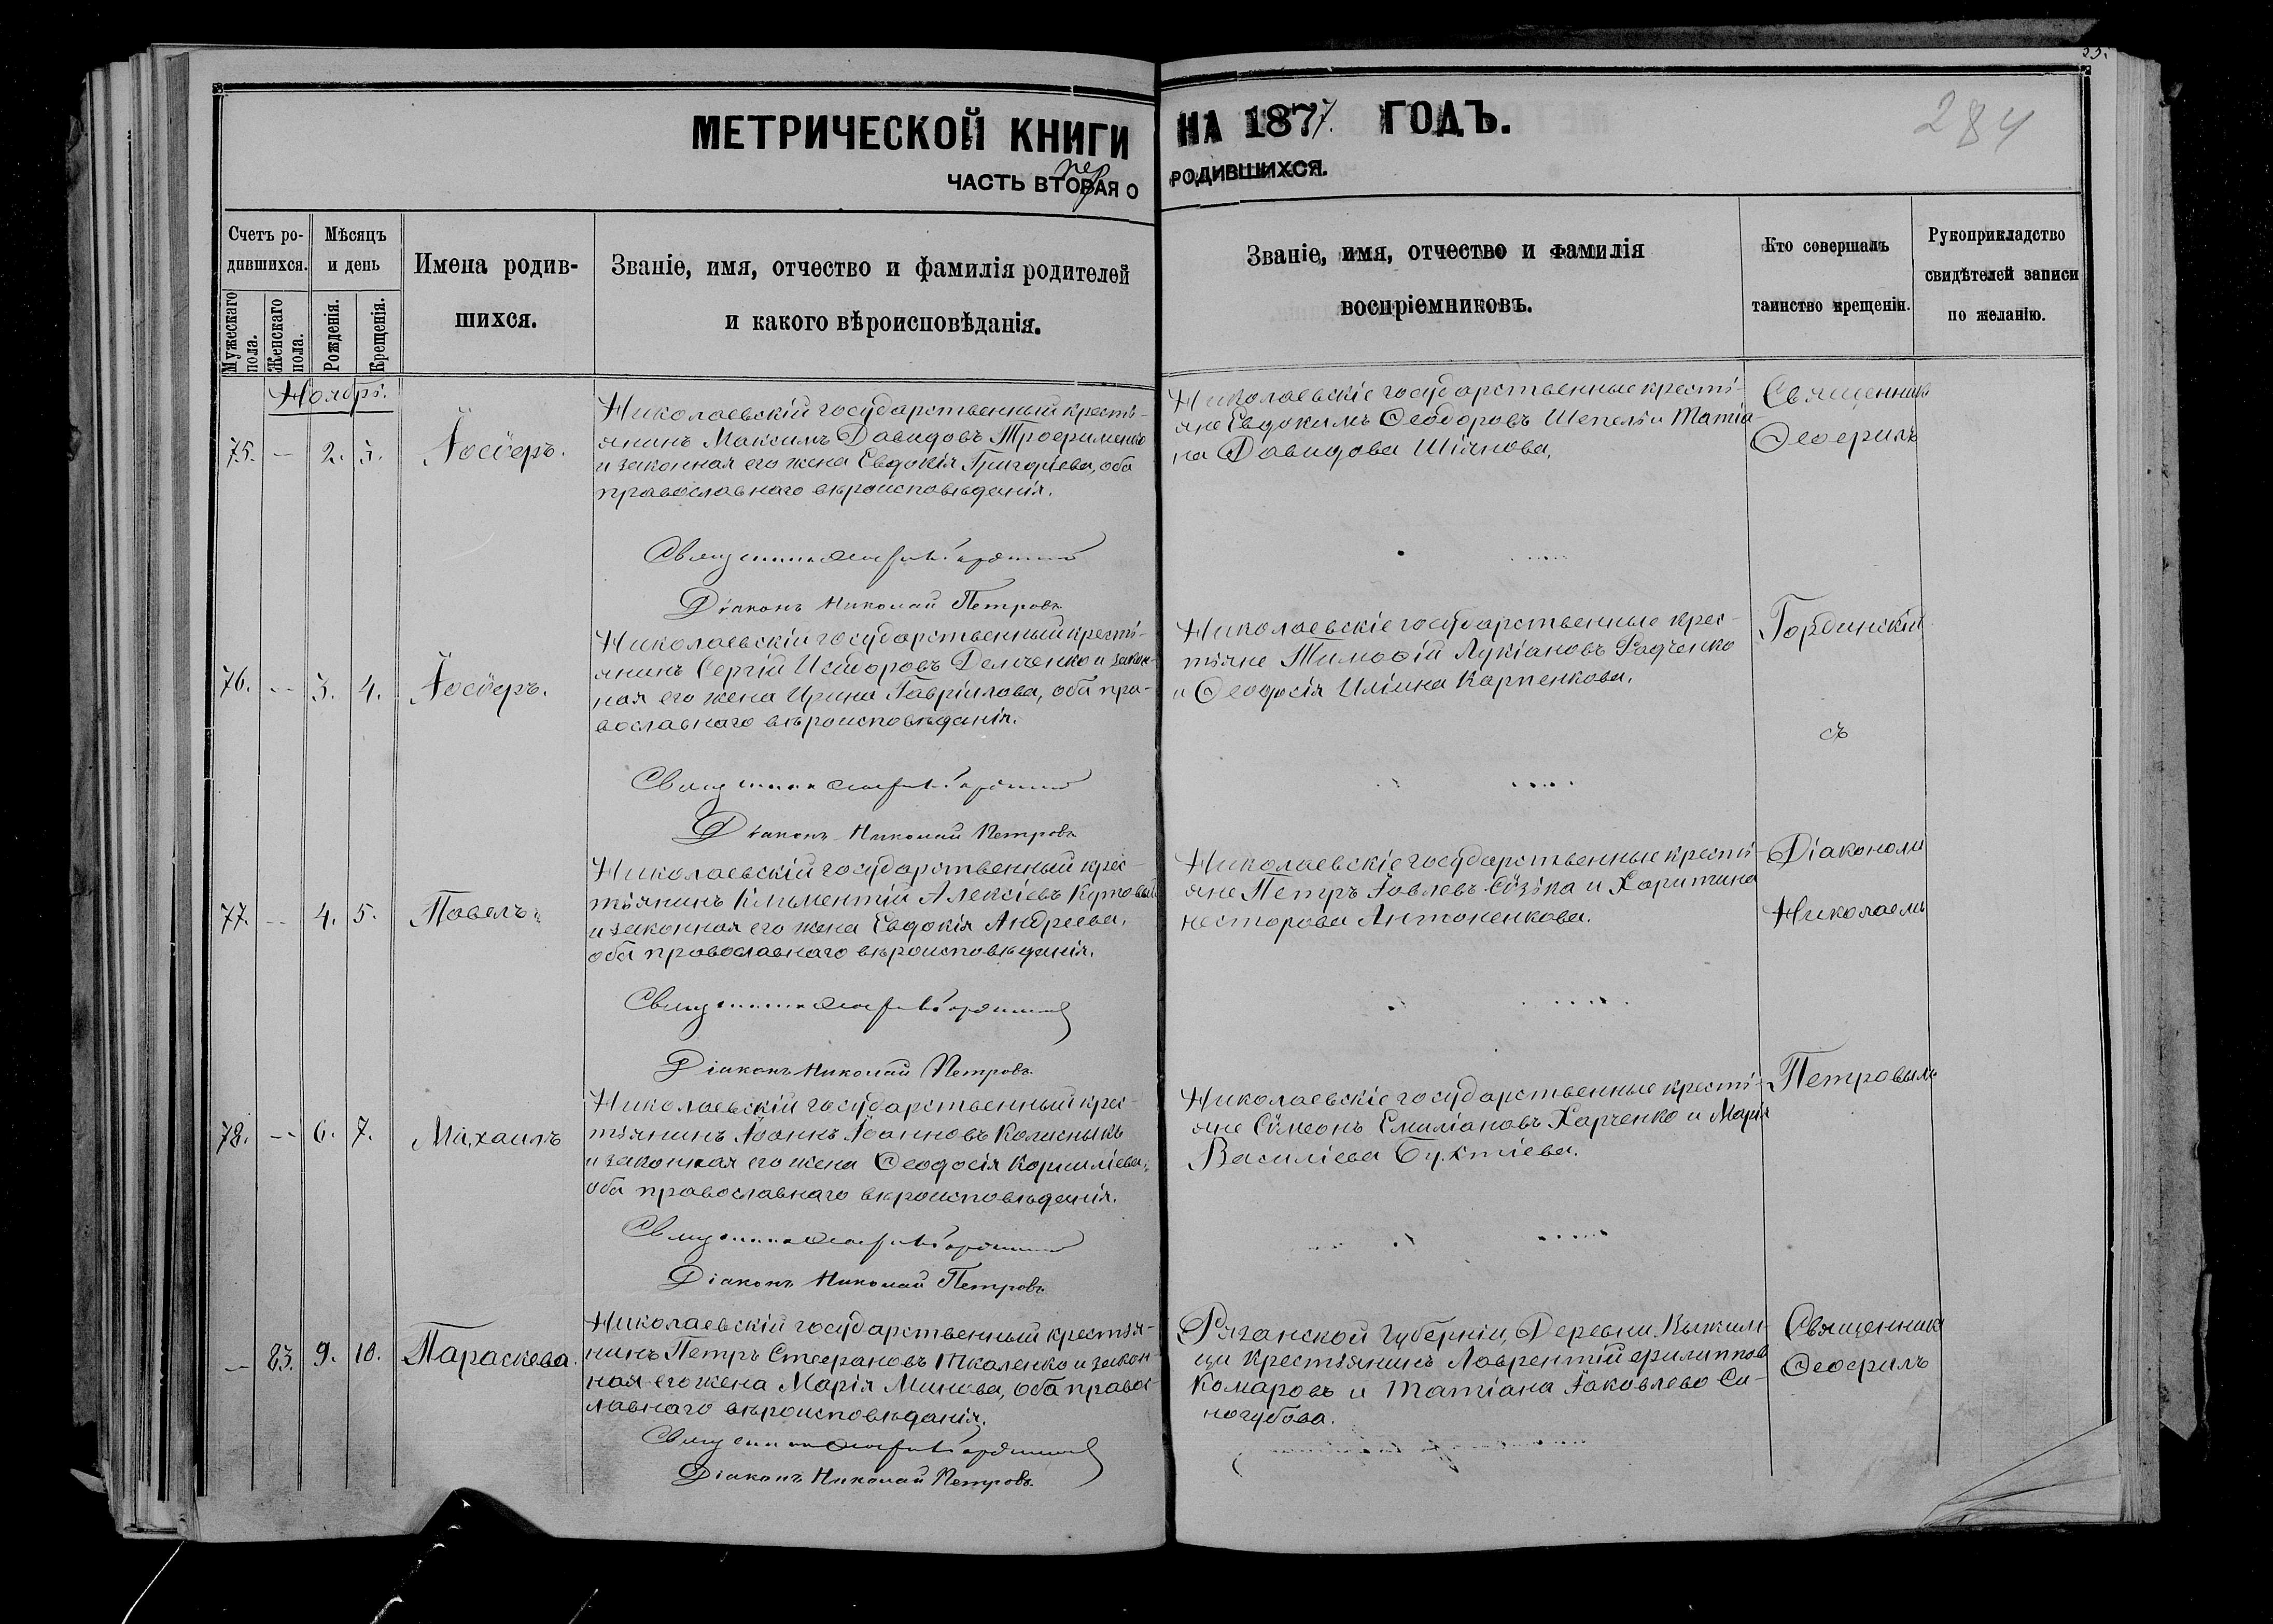 33.
284
МЕТРИЧЕСКОЙ КНИГИ НА 1877. ГОДЪ.
пер
ЧАСТЬ ВТОРАЯ О РОДИВШИХСЯ.
Счетъ ро-
дившихся.
Мужескаго
пола.
Женскаго
пола.
Мѣсяцъ
и день
Рожденія.
Крещенія.
Имена родив-
шихся.
Званіе, имя, отчество и фамилія родителей
и какого вѣроисповѣданія.
Званіе, имя, отчество и фамилія
воспріемниковъ.
Кто совершалъ
таинство крещенія.
Рукоприкладство
свидѣтелей записи
по желанію.
Ноябрь.
75. — 2. 3. Іосифъ.
Николаевскій государственный кресть-
янинъ Максимъ Давидовъ Трофименко
и законная его жена Евдокія Григоріева, оба
православнаго вѣроисповѣданія.
Священникъ Ѳеофилъ Гординскій
Діаконъ Николай Петровъ
Николаевскіе государственные кресть-
яне Евдокимъ Ѳеодоровъ Шепель и Татіа-
на Давидова Шіянова.
Священникъ
Ѳеофилъ
76. — 3. 4. Іосифъ.
Николаевскій государственный кресть-
янинъ Сергій Исидоровъ Демченко и закон-
ная его жена Ирина Гавріилова, оба пра-
вославнаго вѣроисповѣданія.
Священникъ Ѳеофилъ Гординскій
Діаконъ Николай Петровъ
Николаевскіе государственные крес-
тьяне Тимоѳій Лукіановъ Радченко
и Ѳеодосія Иліина Карпенкова.
Гординскій
съ
77. — 4. 5. Павелъ.
Николаевскій государственный крес-
тьянинъ Климентій Алексіевъ Кутовый
и законная его жена Евдокія Андреева,
оба православнаго вѣроисповѣданія.
Священникъ Ѳеофилъ Гординскій
Діаконъ Николай Петровъ
Николаевскіе государственные кресть-
яне Петръ Іовлевъ и Харитина
Несторова Антоненкова.
Діакономъ
Николаемъ
78. — 6. 7. Михаилъ
Николаевскій государственный крес-
тьянинъ Іоаннъ Іоанновъ Колисныкъ
и законная его жена Ѳеодосія Корниліева,
оба православнаго вѣроисповѣданія.
Священникъ Ѳеофилъ Гординскій
Діаконъ Николай Петровъ
Николаевскіе государственные кресть-
яне Сѵмеонъ Емиліановъ Харченко и Марія
Василіева
Петровымъ
— 83. 9. 10. Параскева.
Николаевскій государственный крестья-
нинъ Петръ Стефановъ Ткаленко и закон
ная его жена Марія Минова, оба правос-
лавнаго вѣроисповѣданія.
Священникъ Ѳеофилъ Гординскій
Діаконъ Николай Петровъ
Рязанской губерніи, Деревни
крестьянинъ Лаврентій Филиппов
Комаровъ и Татіана Іаковлева Си-
ногубова.
Священникъ
Ѳеофилъ